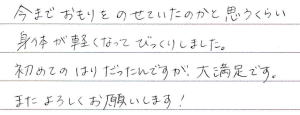 今までおもりをのせていたのかと思うくらい
身体が軽くなってびっくりしました。
初めてのはりだったんですが、大満足です。
またよろしくお願いします！